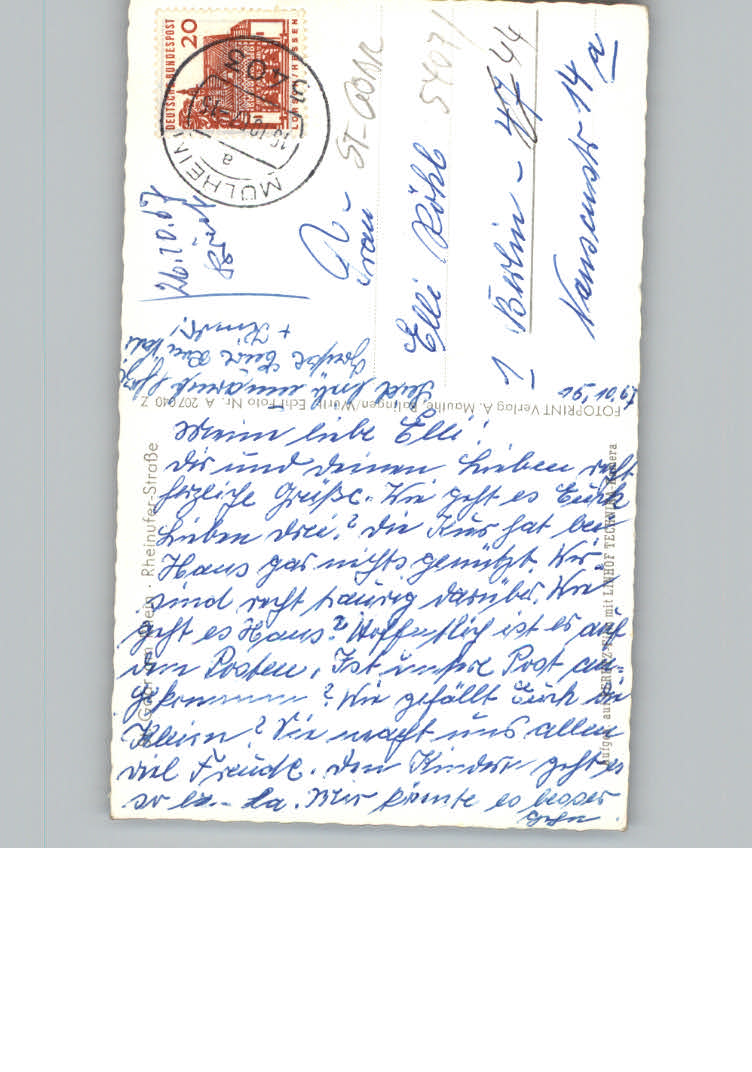 DEUTSCHE BUNDESPOST
20
LORSCH/HESSEN
MÜLHEIM
403
a
ST-GOAR
5407/
Frau
Elli Röhl
1 Berlin - 47 44
Nansenstr 14 a
26.10.67
Grüßt Eure
FOTOPRINT Verlag A. Mauthe, Balingen/Württ. Echt Foto Nr. A 207 040 Z
St. Goar am Rhein · Rheinufer-Straße
mit LINHOF TECHNIKA-Kamera
10.67
Meine liebe Elli!
Dir und Deinen Lieben recht
herzliche Grüße. Wie geht es Euch
Lieben drei? Die Kur hat bei
Hans gar nichts genützt. Wir
sind recht traurig darüber. Wie
geht es Hans? Hoffentlich ist es auf
dem Posten. Ist unsere Post an-
gekommen? Wie gefällt Euch die
Kleine? Sie macht uns allen
viel Freude. Den Kindern geht es
so la - la. Mir könnte es besser
gehn.